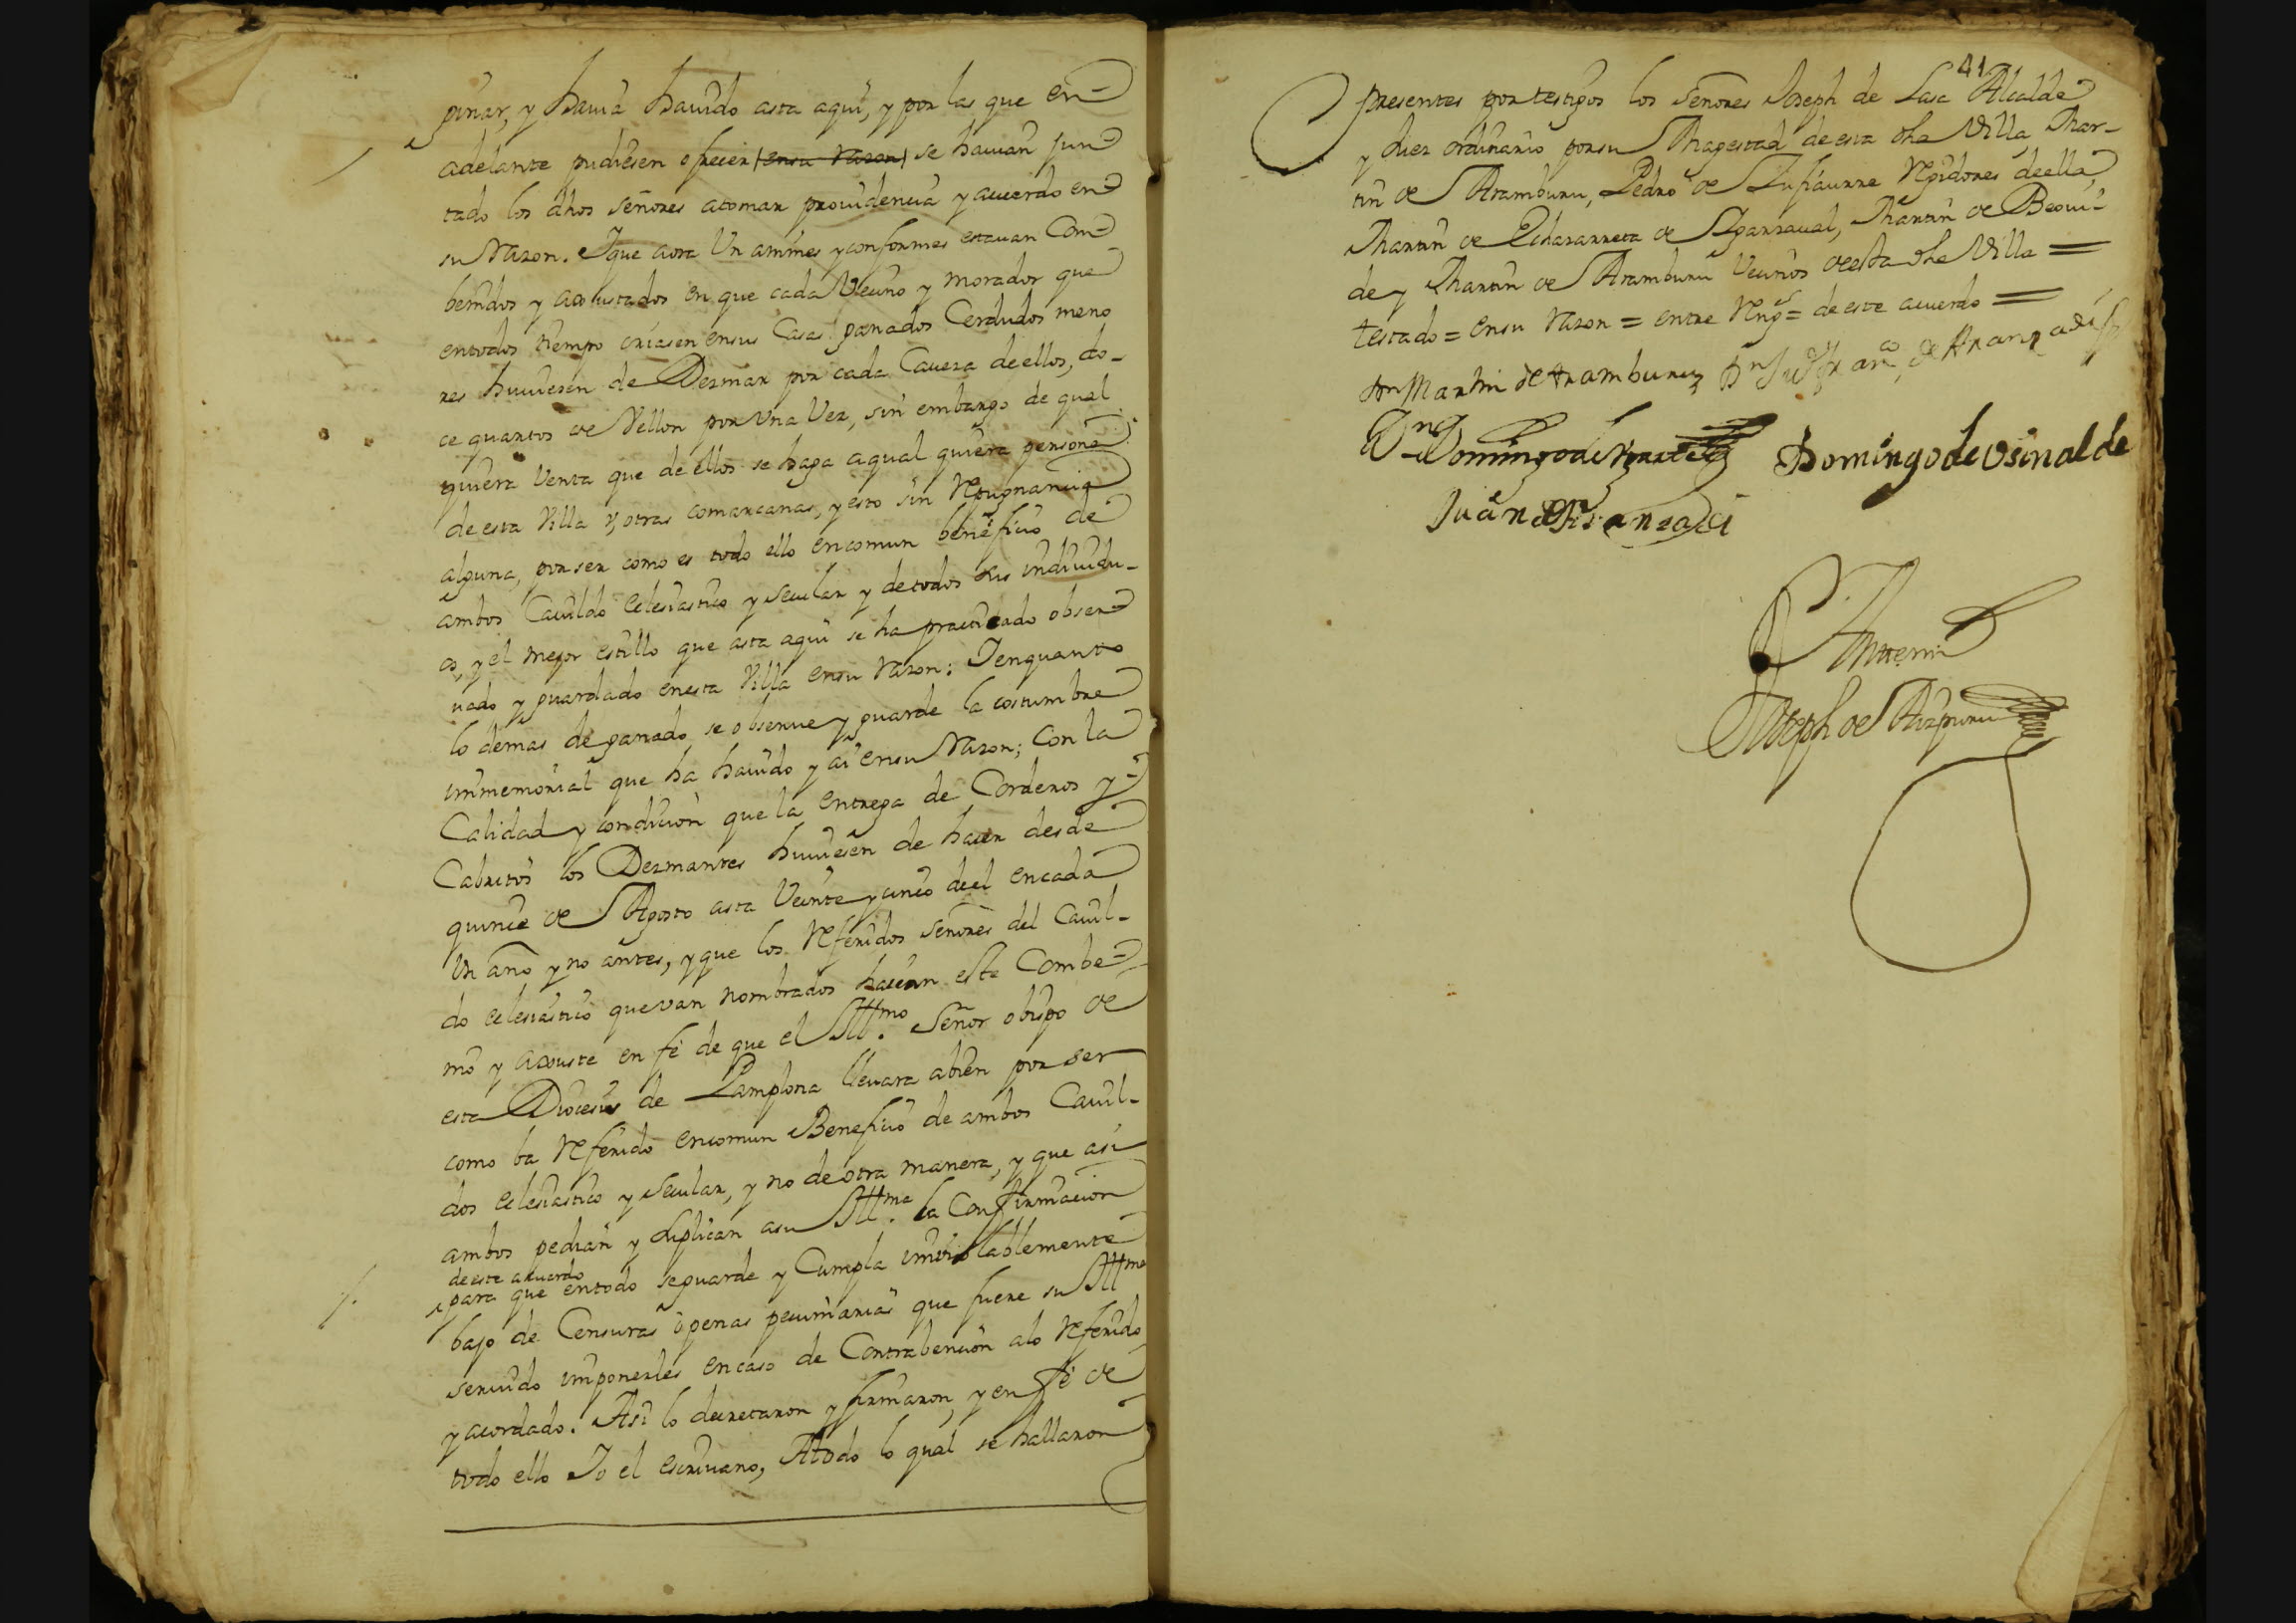 pinar, y havia havido asta aqui, y por las que en
adelante pudiesen ofrecer (en su razon) se havian jun
tado los dhos señores atomar providencia y acuerdo en
su Razon. Y que aora Un animes y conformes estavan Com
benidos y axustados en que cada Vecino y morador que
entodos tiempo criasen ensus Casas ganados Cerdudos meno
res huviesen de Dezmar por cada Caveza deellos, do-
ce quartos de Vellon por Una Vez, sin embargo de qual
quiera Venta que de ellos se haga aqual quiera persona
de esta Villa y otras comarcanas, y esto sin Repugnancia
alguna, por ser como es todo ello en comun beneficio de
ambos Cavildo eclesiastico y secular y detodos sus individu-
os, y el mejor estillo que asta aqui se ha practicado obser
vado y guardado enesta Villa ensu razon: Y enquanto
lo demas de ganado se observe y guarde la costumbre
immemorial que ha havido y ai ensu Razon; Con la
Calidad y condicion que la entrega de Corderos y
Cabritos los Dezmantes huviesen de hacer desde
quince de Agosto asta Veinte y cinco deel encada
Un año y no antes, y que los Referidos señores del Cavil-
do eclesiastico que van nombrados hacian este Combe-
nio y axuste en fé de que el Illmo. Señor obispo de
esta Diocesis de Pamplona llevara abien por ser
como ba Referido encomun Beneficio de ambos Cavil-
dos eclesiastico y secular, y no de otra manera, y que asi
ambos pedian y suplican asu Illma. la Confirmacion
de este acuerdo
para que entodo seguarde y Cumpla imbiolablemente
bajo de Censuras ô penas pecuniarias que fuere su Illma
servido imponerles encaso de Contrabencion alo Referido
y acordado. Asi lo decretaron y firmaron, y en fé de
todo ello Yo el escrivano, Atodo lo qual se hallaron
41
presentes por testigos los señores Joseph de Lasa Alcalde
y Juez ordinario por su Magestad de esta dha Villa, Mar-
tin de Aramburu, Pedro de Lufiaurre Regidores deella,
Martin de Echazarreta de Igarzaval, Martin de Beovi-
de y Martin de Aramburu Vecinos deesta dha Villa =
testado = ensu razon = entre Rengs = de este acuerdo =
Dn Martin de Aramburu Dn Ju Franco de Aranzadi
Dn Domingo de Domingo de Usinalde
Juan de Aranzadi
Antemi
Joseph de Aizpuru